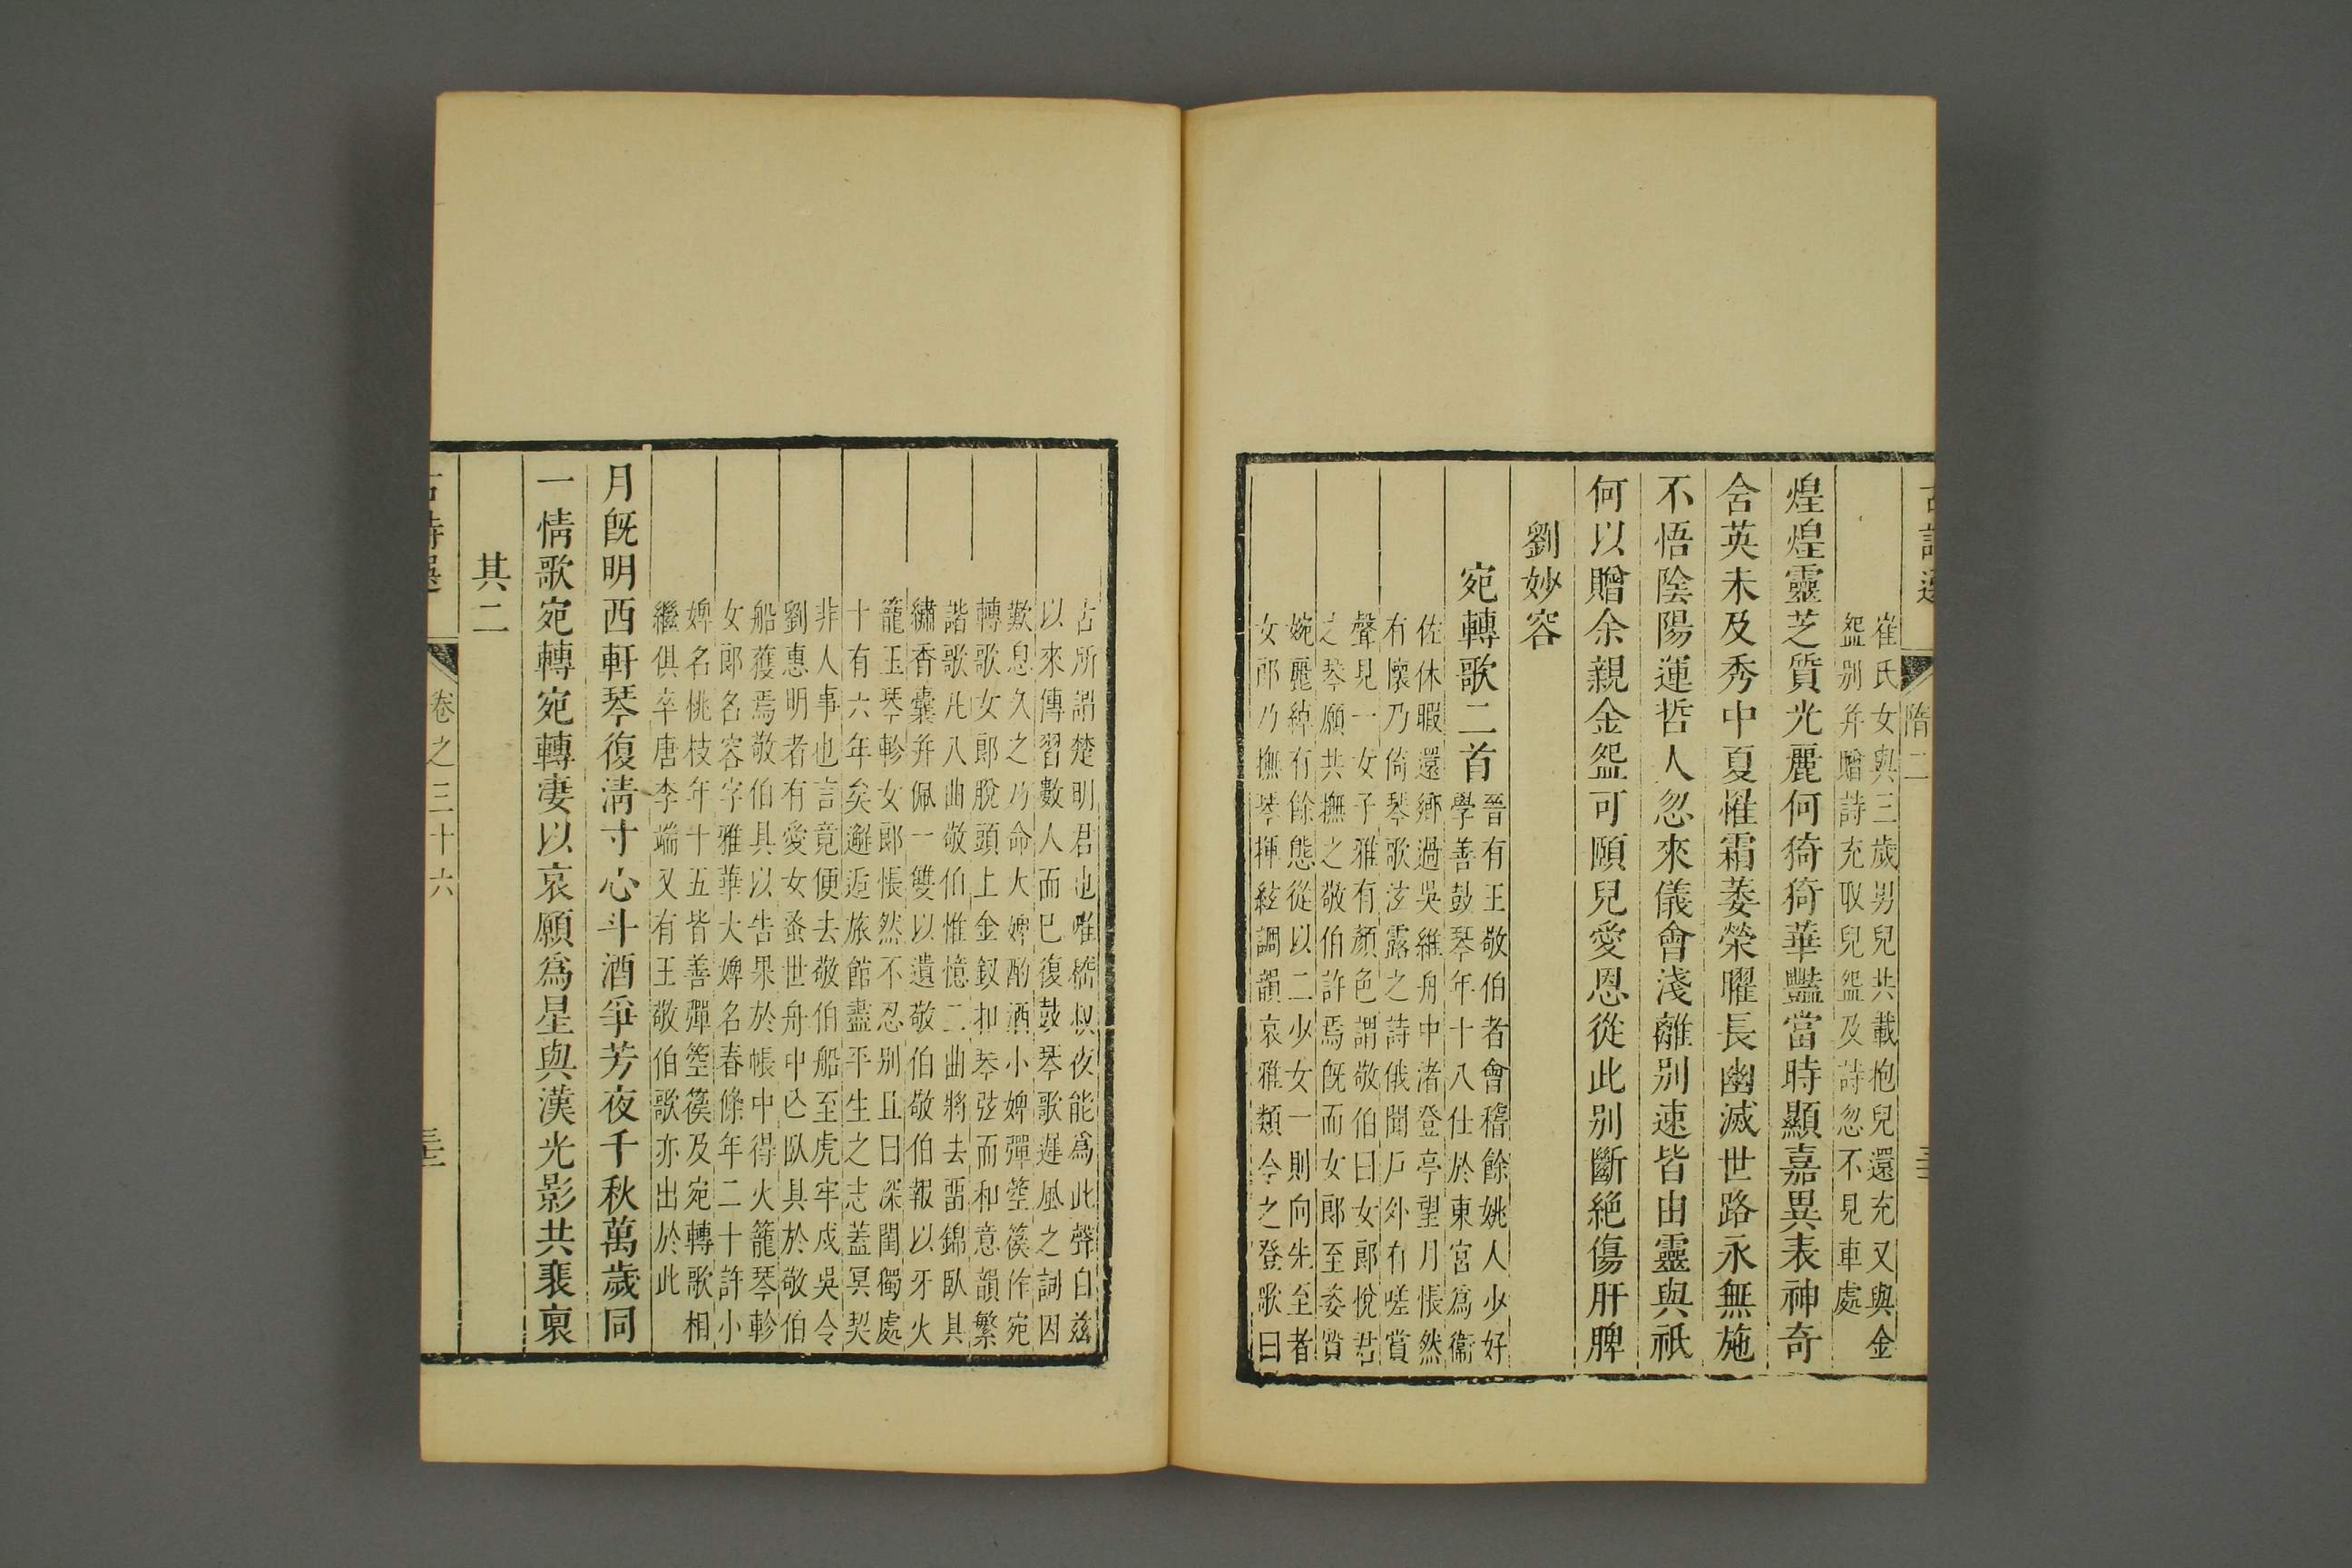 隋二
崔氏女與三歲男兒共載抱兒還充又與金
盌别并贈詩充取兒盌及詩忽不見車處
煌煌靈芝質光麗何猗猗華豔當時顯嘉異表神奇
含英未及秀中夏惟霜萎榮曜長幽滅世路永無施
不悟陰陽運哲人忽來儀會淺離别速皆由靈與祇
何以贈余親金盌可頤兒愛恩從此别斷絶傷肝脾
劉妙容
宛轉歌二首
晉有王敬伯者會稽餘姚人少好
學善鼓琴年十八仕於東宮為衞
佐休暇還鄉過吳維舟中渚登亭望月悵然
有懷乃倚琴歌泫露之詩俄聞戸外有嗟賞
聲見一女子雅有顏色謂敬伯曰女郎悅君
之琴願共撫之敬伯許焉旣而女郎至委質
婉麗綽有餘態從以二少女一則向先至者
女郎乃撫琴揮絃調韻哀雅類今之登歌曰
古所謂楚明君也唯嵇叔夜能爲此聲自茲
以來傳習數人而已復鼓琴歌遲風之詞因
歎息久之乃命大婢酌酒小婢彈箜篌作宛
轉歌女郎脫頭上金釵扣琴弦而和意韻繁
諧歌凡八曲敬伯惟憶二曲將去畱錦臥具
繡香囊并佩一雙以遺敬伯敬伯報以牙火
籠玉琴軫女郎悵然不忍别且曰深閨獨處
十有六年矣邂逅旅館盡平生之志蓋冥契
非人事也言竟便去敬伯船至虎牢戍吳令
劉惠明者有愛女蚤世舟中亡臥具於敬伯
船獲焉敬伯具以告果於帳中得火籠琴軫
女郎名容字雅華大婢名春條年二十許小
婢名桃枝年十五皆善彈箜篌及宛轉歌相
繼俱卒唐李端又有王敬伯歌亦出於此
月旣明西軒琴復清寸心斗酒爭芳夜千秋萬歲同
一情歌宛轉宛轉淒以哀願爲星與漢光影共裴裒
其二
卷之三十六